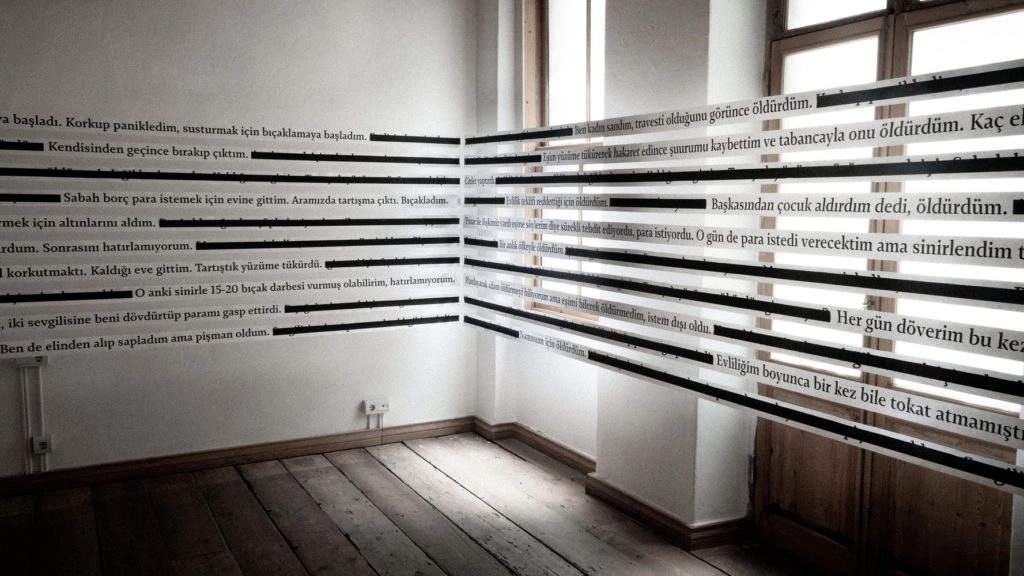 ya başladı. Korkup panikledim, susturmak için bıçaklamaya başladım.
Kendisinden geçince bırakıp çıktım.
Sabah borç para istemek için evine gittim. Aramızda tartışma çıktı. Bıçakladım.
rmek için altınlarını aldım.
rdum. Sonrasını hatırlamıyorum.
l korkutmaktı. Kaldığı eve gittim. Tartıştık yüzüme tükürdü.
O anki sinirle 15-20 bıçak darbesi vurmuş olabilirim, hatırlamıyorum.
, iki sevgilisine beni dövdürtüp paramı gasp ettirdi.
Ben de elinden alıp sapladım ama pişman oldum.
Ben kadın sandım, travesti olduğunu görünce öldürdüm.
Eşim yüzüme tükürerek hakaret edince şuurumu kaybettim ve tabancayla onu öldürdüm. Kaç el
Cinler yaptırdı.
Evlilik teklifi reddettiği için öldürdüm. Başkasından çocuk aldırdım dedi, öldürdüm.
Pınar ile ilişkimiz vardı eşime söylerim diye sürekli tehdit ediyordu, para istiyordu. O gün de para istedi verecektim ama sinirlendim t
Bir anlık öfkeyle öldürdüm.
Her gün döverim bu kez
Planlayarak adam öldürmeyi biliyorum ama eşimi bilerek öldürmedim, istem dışı oldu.
Evliliğim boyunca bir kez bile tokat atmamıştı
Namusum için öldürdüm.